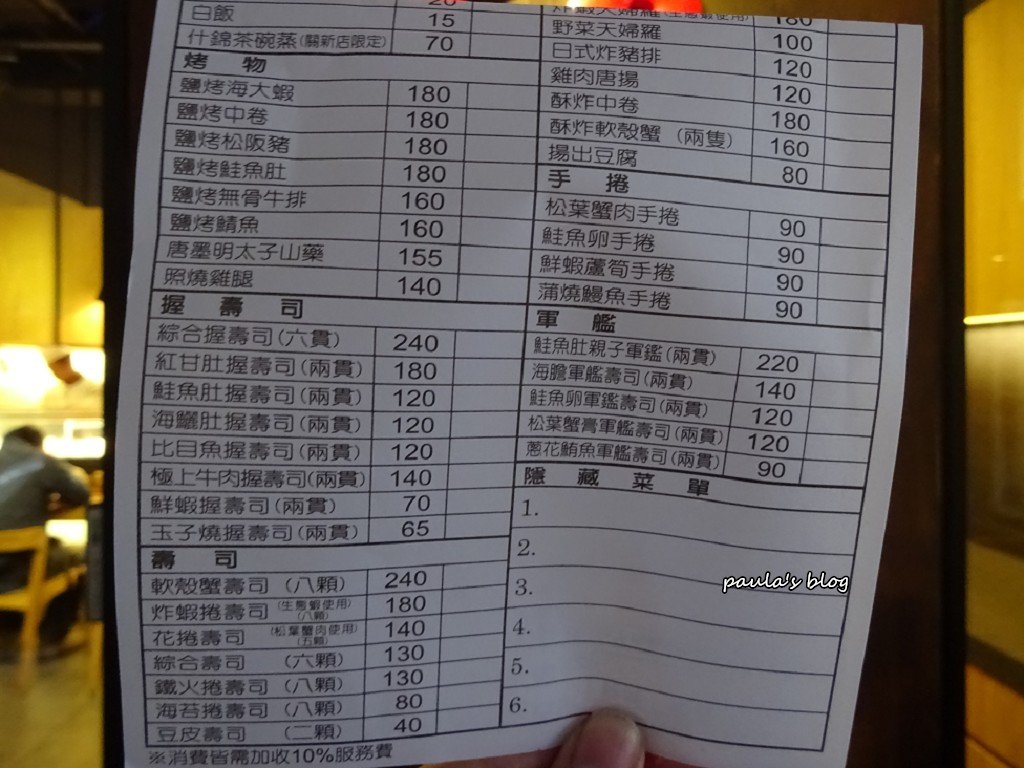 20
白飯 15
什錦茶碗蒸(鬪新店限定) 70
烤 物
鹽烤海大蝦 180
鹽烤中卷 180
鹽烤松阪豬 180
鹽烤鮭魚肚 180
鹽烤無骨牛排 160
鹽烤鯖魚 160
唐墨明太子山藥 155
照燒雞腿 140
握 壽 司
綜合握壽司(六貫) 240
紅甘肚握壽司(兩貫) 180
鮭魚肚握壽司(兩貫) 120
海鱺肚握壽司(兩貫) 120
比目魚握壽司(兩貫) 120
極上牛肉握壽司(兩貫) 140
鮮蝦握壽司(兩貫) 70
玉子燒握壽司(兩貫) 65
壽 司
軟殼蟹壽司 (八顆) 240
炸蝦捲壽司 (生態蝦使用) (八顆) 180
花捲壽司 (松葉蟹肉使用) (五顆) 140
綜合壽司 (六顆) 130
鐵火捲壽司 (八顆) 130
海苔捲壽司 (八顆) 80
豆皮壽司 (二顆) 40
※消費皆需加收10%服務費
炸蝦天婦羅(生態蝦使用) 180
野菜天婦羅 100
日式炸豬排 120
雞肉唐揚 120
酥炸中卷 180
酥炸軟殼蟹 (兩隻) 160
揚出豆腐 80
手 捲
松葉蟹肉手捲 90
鮭魚卵手捲 90
鮮蝦蘆筍手捲 90
蒲燒鰻魚手捲 90
軍 艦
鮭魚肚親子軍鑑(兩貫) 220
海膽軍艦壽司(兩貫) 140
鮭魚卵軍鑑壽司(兩貫) 120
松葉蟹膏軍艦壽司(兩貫) 120
蔥花鮪魚軍艦壽司(兩貫) 90
隱 藏 菜 單
1.
2.
3.
4.
5.
6.
paula's blog